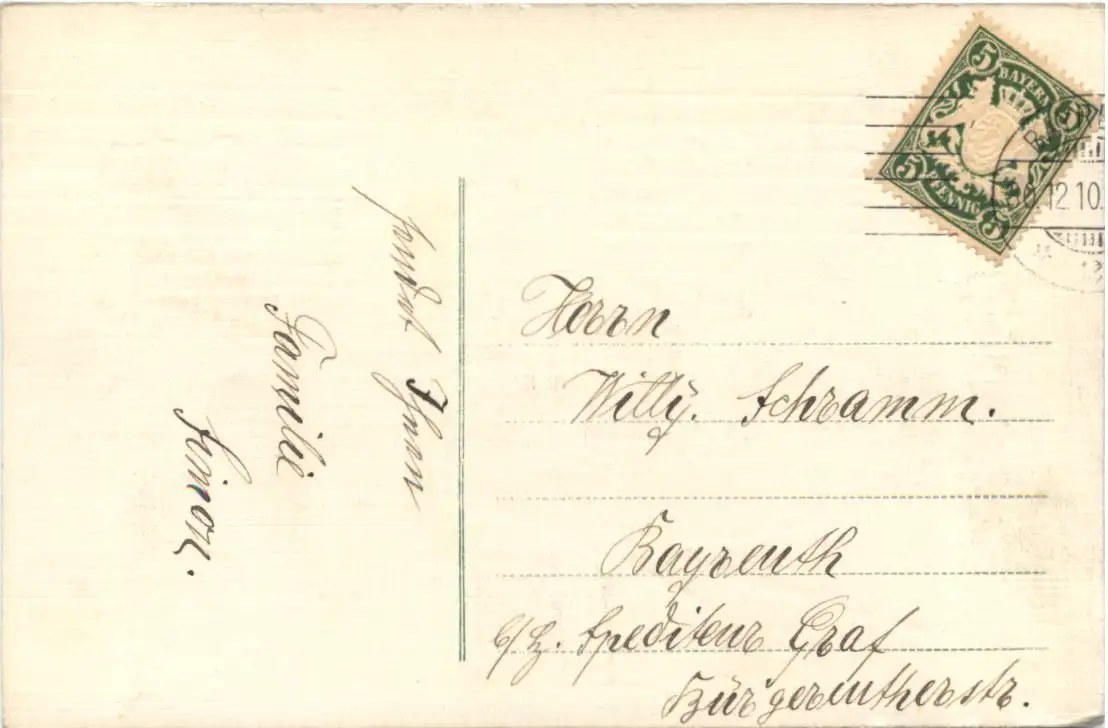 sendet Ihnen
Familie
Simon.
5 BAYERN 5
5 PFENNIG 5
30.12.10.
Herrn
Willy. Schramm.
Bayreuth
b/H. Spediteur Graf
Bürgerreutherstr.